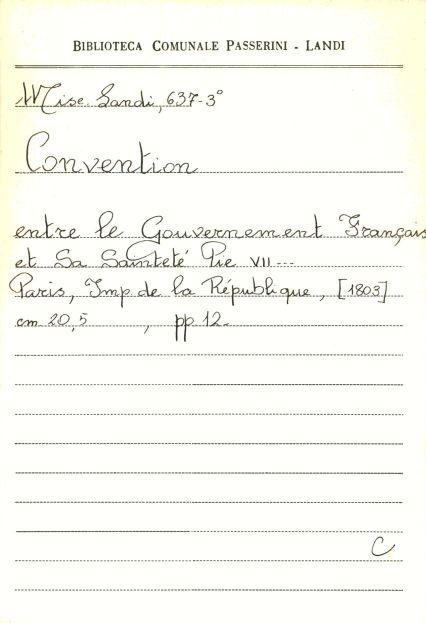 BIBLIOTECA COMUNALE PASSERINI - LANDI
Misc. Landi, 637-3°
Convention
entre le Gouvernement Français
et Sa Sainteté Pie VII ---
Paris, Imp. de la République, [1803]
cm 20,5 , pp 12.
C